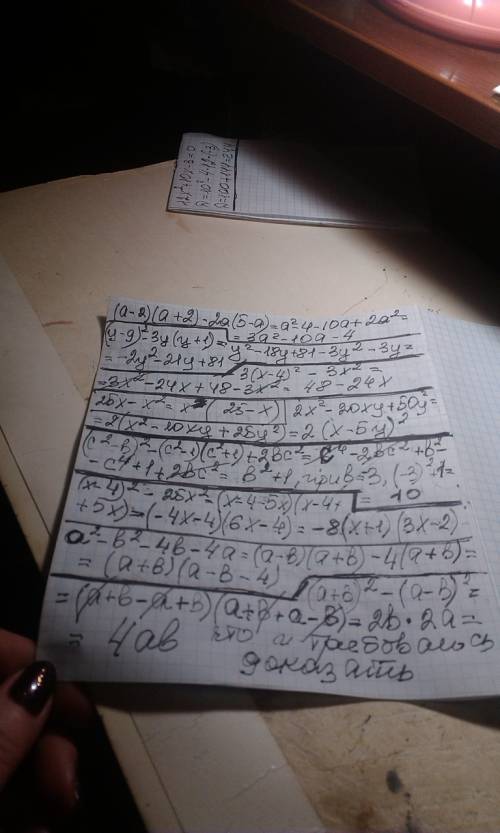 12x²+10x-3=0
(a-2)(a+2)-2a(5-a)=a²-4-10a+2a²=
=3a²-10a-4
(y-9)²-3y(y+1)=y²-18y+81-3y²-3y=
=-2y²-21y+81
3(x-4)²-3x²=
=3x²-24x+48-3x²=48-24x
25x-x²=x(25-x) 2x²-20xy+50y²=
=2(x²-10xy+25y²)=2(x-5y)²
(c²-в)²-(c²-1)(c²+1)+2вc²=c⁴-2вc²+в²-
-c⁴+1+2вc²=в²+1, при в=3, (-3)²+1=
=10
(x-4)²-25x²=(x-4-5x)(x-4+
+5x)=(-4x-4)(6x-4)=-8(x+1)(3x-2)
a²-в²-4в-4a=(a-в)(a+в)-4(a+в)=
=(a+в)(a-в-4)
(a+в)²-(a-в)²=
=(a+в-a+в)(a+в+a-в)=2в·2a=
=4ав что и требовалось
доказать